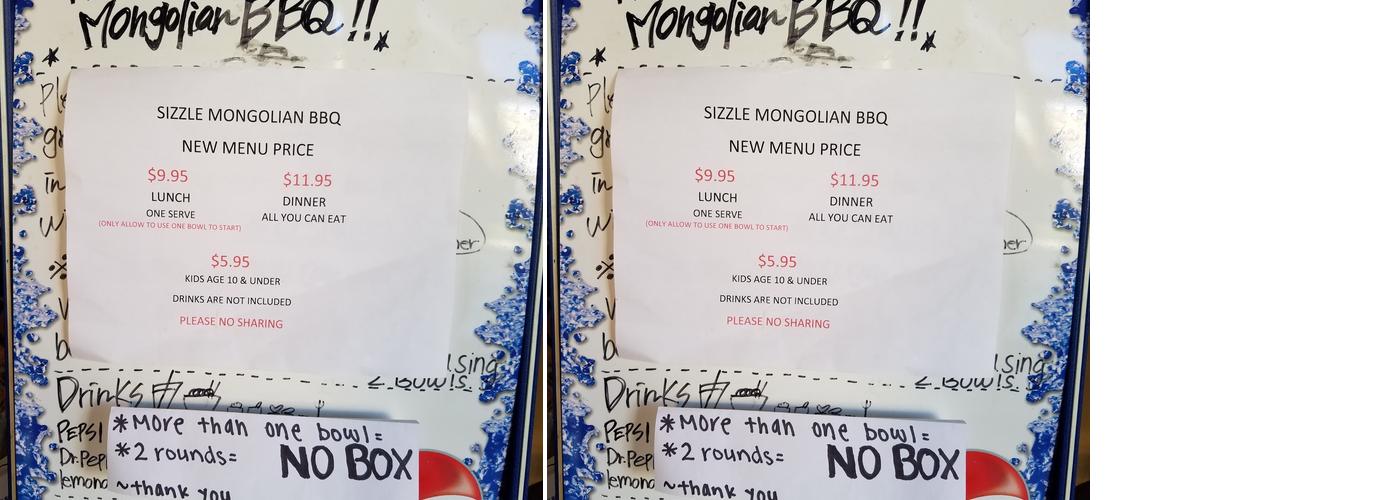 Mongolian BBQ!!
SIZZLE MONGOLIAN BBQ
NEW MENU PRICE
$9.95 $11.95
LUNCH DINNER
ONE SERVE ALL YOU CAN EAT
(ONLY ALLOW TO USE ONE BOWL TO START)
$5.95
KIDS AGE 10 & UNDER
DRINKS ARE NOT INCLUDED
PLEASE NO SHARING
Drinks
PEPSI
Dr.Pep
lemona
*More than one bowl=
*2 rounds= NO BOX
~thank you
Mongolian BBQ!!
SIZZLE MONGOLIAN BBQ
NEW MENU PRICE
$9.95 $11.95
LUNCH DINNER
ONE SERVE ALL YOU CAN EAT
(ONLY ALLOW TO USE ONE BOWL TO START)
$5.95
KIDS AGE 10 & UNDER
DRINKS ARE NOT INCLUDED
PLEASE NO SHARING
Drinks
PEPSI
Dr.Pep
lemona
*More than one bowl=
*2 rounds= NO BOX
~thank you